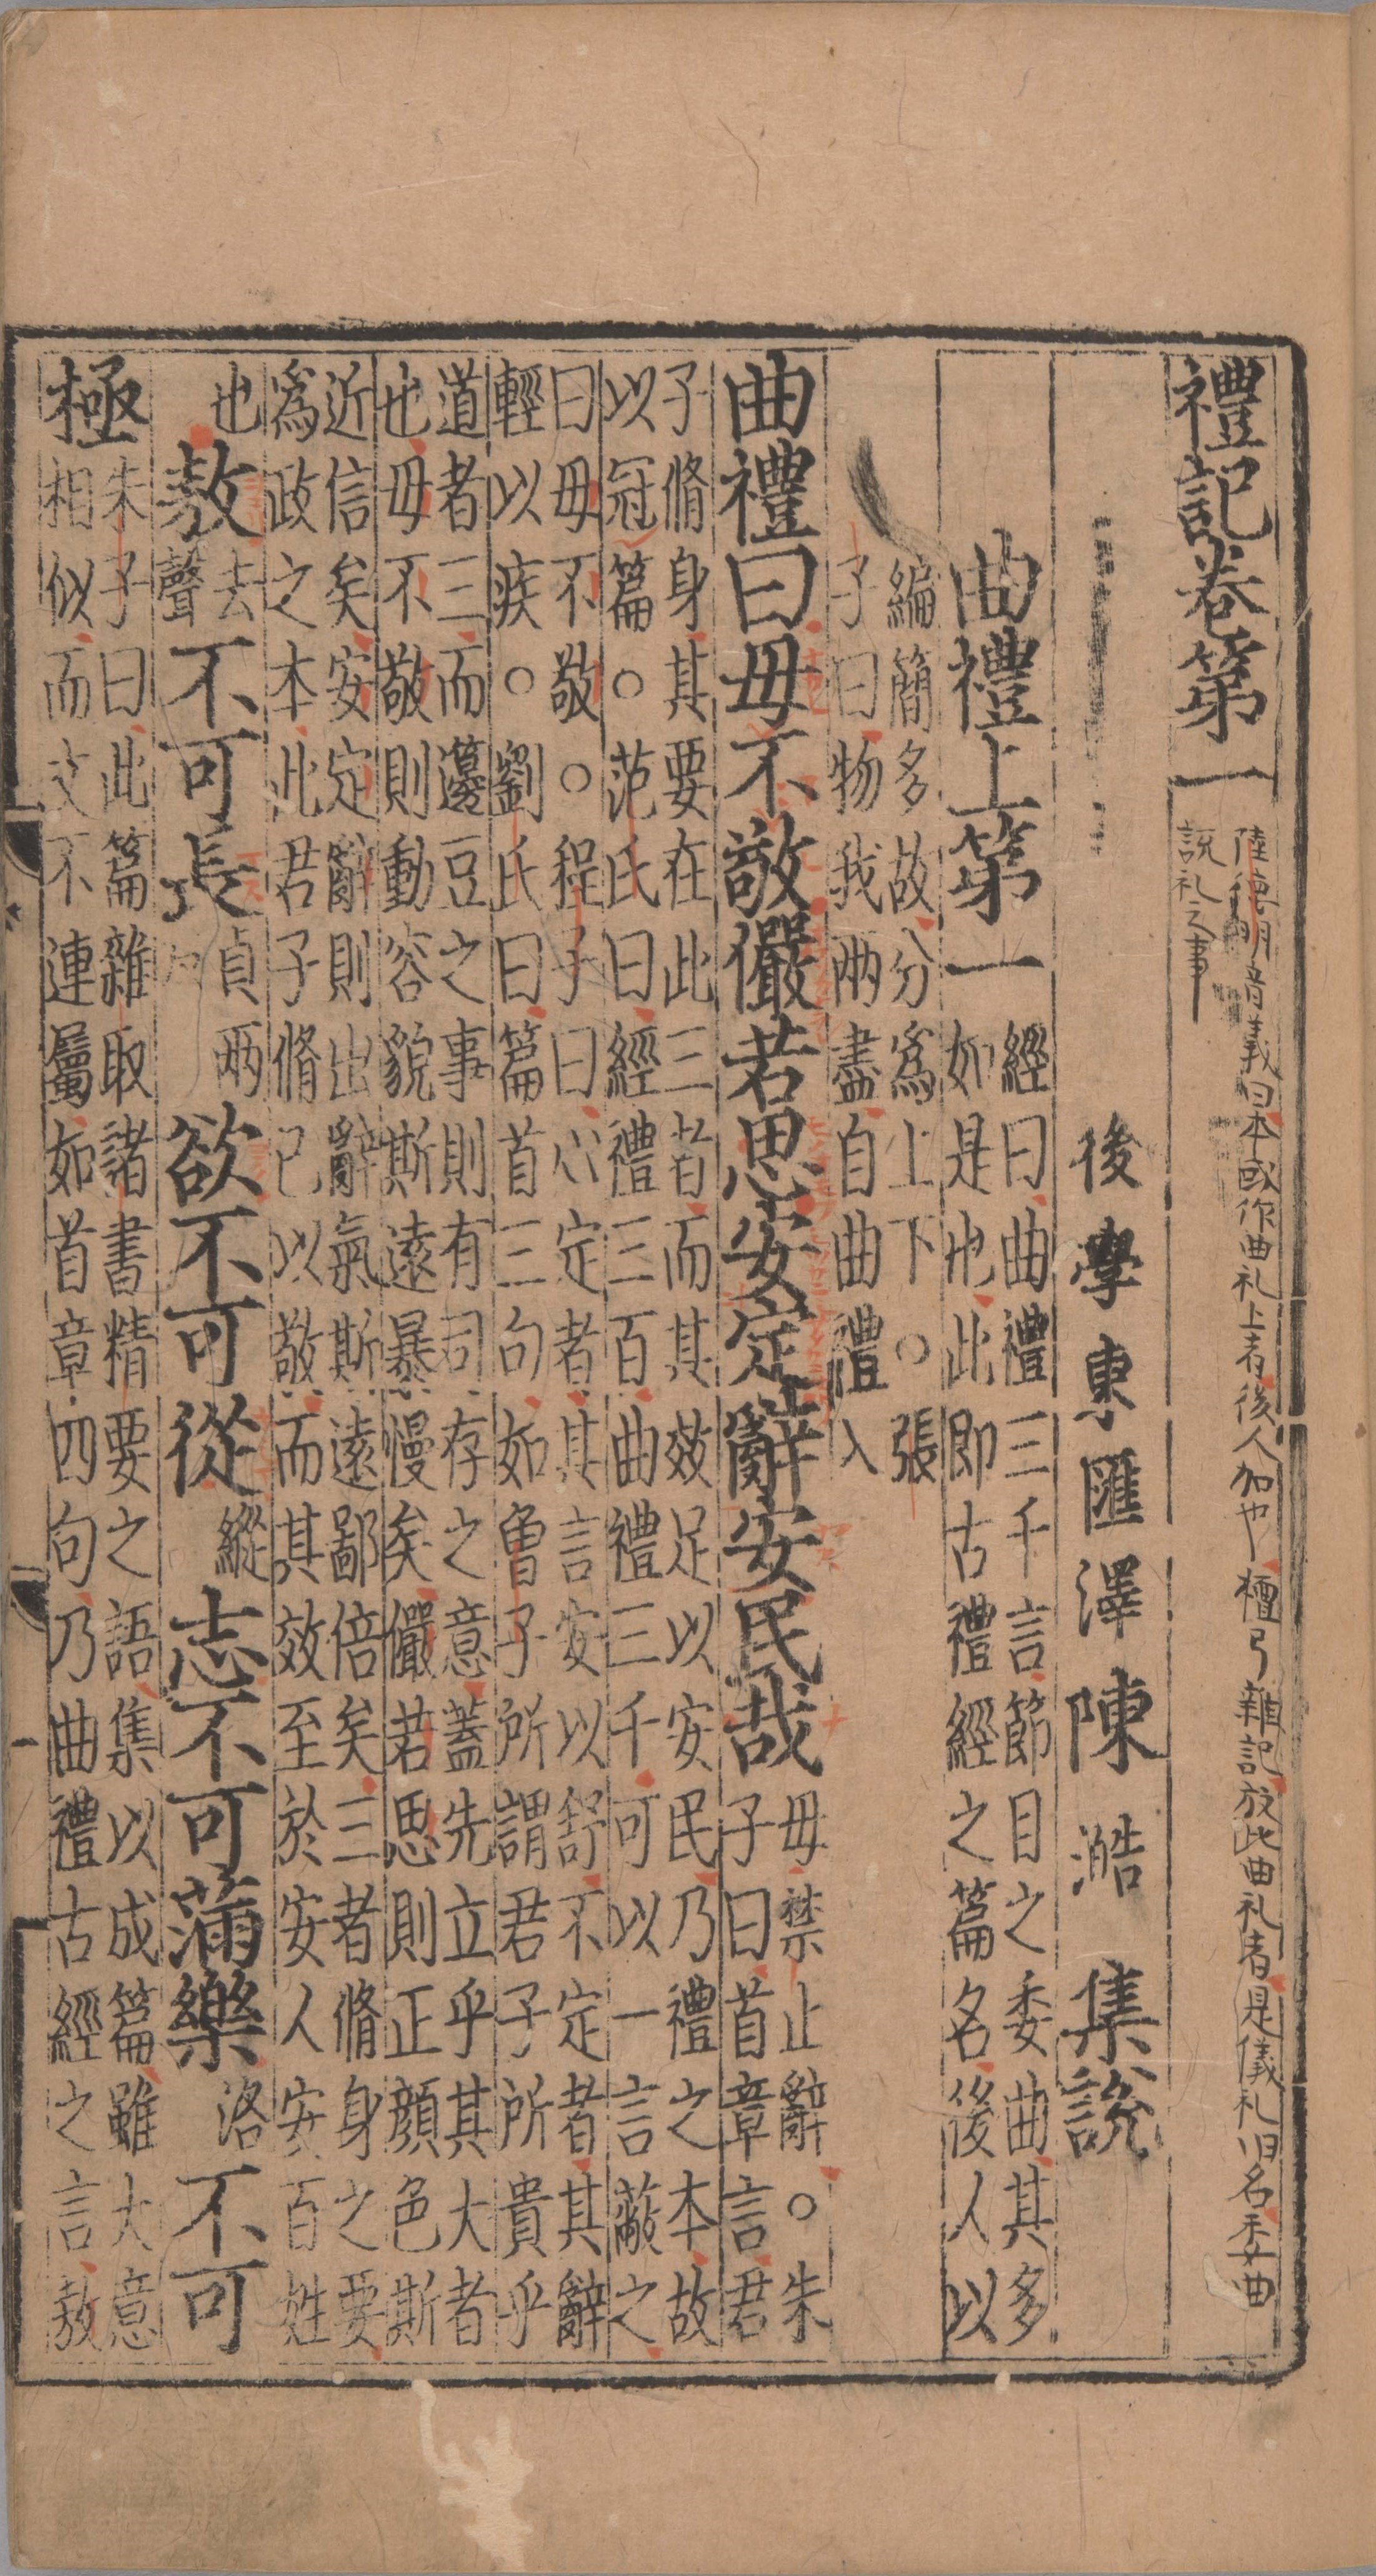 禮記卷第一
陸德明音義曰本或作曲礼上者後人加也檀弓雜記放此曲礼者是儀礼旧名委曲
説礼之事
後學東匯澤陳澔集說
曲禮上第一
經曰曲禮三千言節目之委曲其多
如是也此即古禮經之篇名後人以
編簡多故分爲上下○張
子曰物我兩盡自曲禮入
曲禮曰毋不敬儼若思安定辭安民哉
毋禁止辭○朱
子曰首章言君
子脩身其要在此三者而其效足以安民乃禮之本故
以冠篇○范氏曰經禮三百曲禮三千可以一言蔽之
曰毋不敬○程子曰心定者其言安以舒不定者其辭
輕以疾○劉氏曰篇首三句如曾子所謂君子所貴乎
道者三而籩豆之事則有司存之意蓋先立乎其大者
也毋不敬則動容貌斯遠暴慢矣儼若思則正顔色斯
近信矣安定辭則出辭氣斯遠鄙倍矣三者脩身之要
爲政之本此君子脩己以敬而其效至於安人安百姓
也
敖去聲不可長貞兩欲不可從縱志不可滿樂洛不可
極
朱子曰此篇雜取諸書精要之語集以成篇雖大意
相似而文不連屬如首章四句乃曲禮古經之言敖